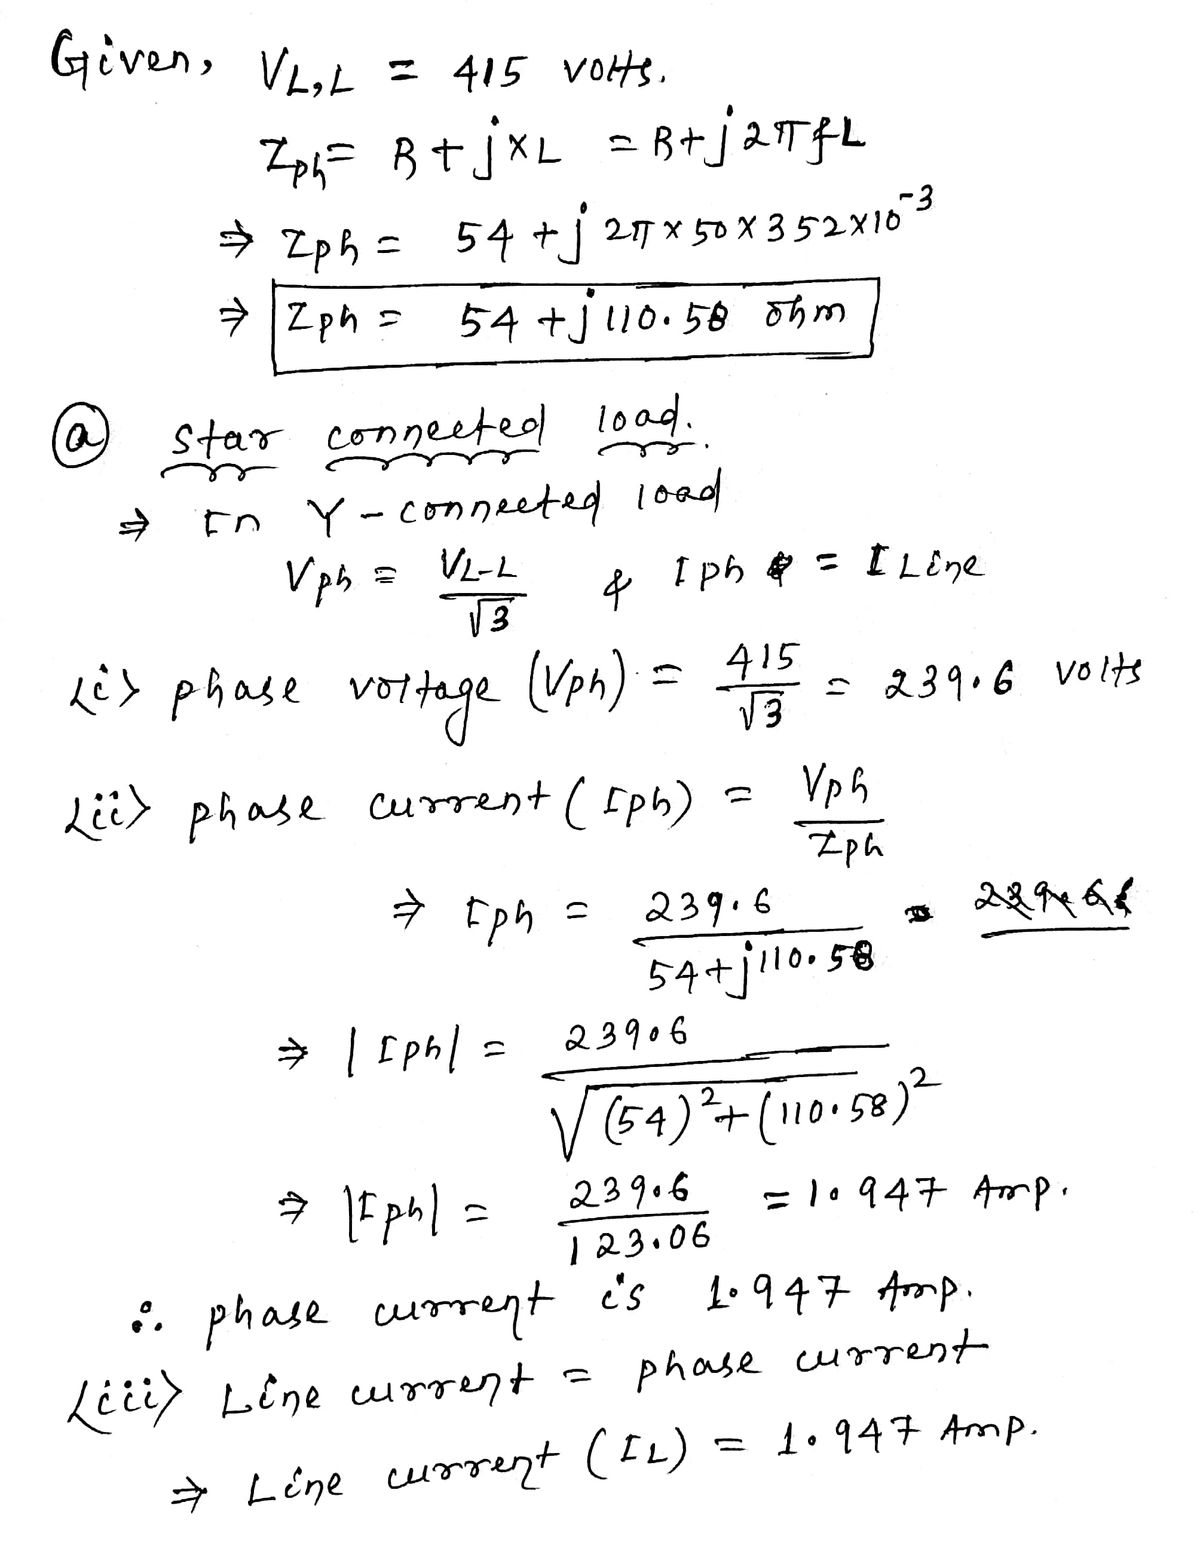 Given, VL,L = 415 volts.
Zph = R + jXL = R + j2πfL
⇒ Zph = 54 + j 2π × 50 × 352 × 10^-3
⇒ Zph = 54 + j110.58 ohm
(a) Star connected load.
⇒ In Y-connected load
Vph = VL-L / √3 & Iph = ILine
<i> phase voltage (Vph) = 415 / √3 = 239.6 volts
<ii> phase current (Iph) = Vph / Zph
⇒ Iph = 239.6 / 54+j110.58 =
⇒ |Iph| = 239.6 / √(54)^2+(110.58)^2
⇒ |Iph| = 239.6 / 123.06 = 1.947 Amp.
∴ phase current is 1.947 Amp.
<iii> Line current = phase current
⇒ Line current (IL) = 1.947 Amp.